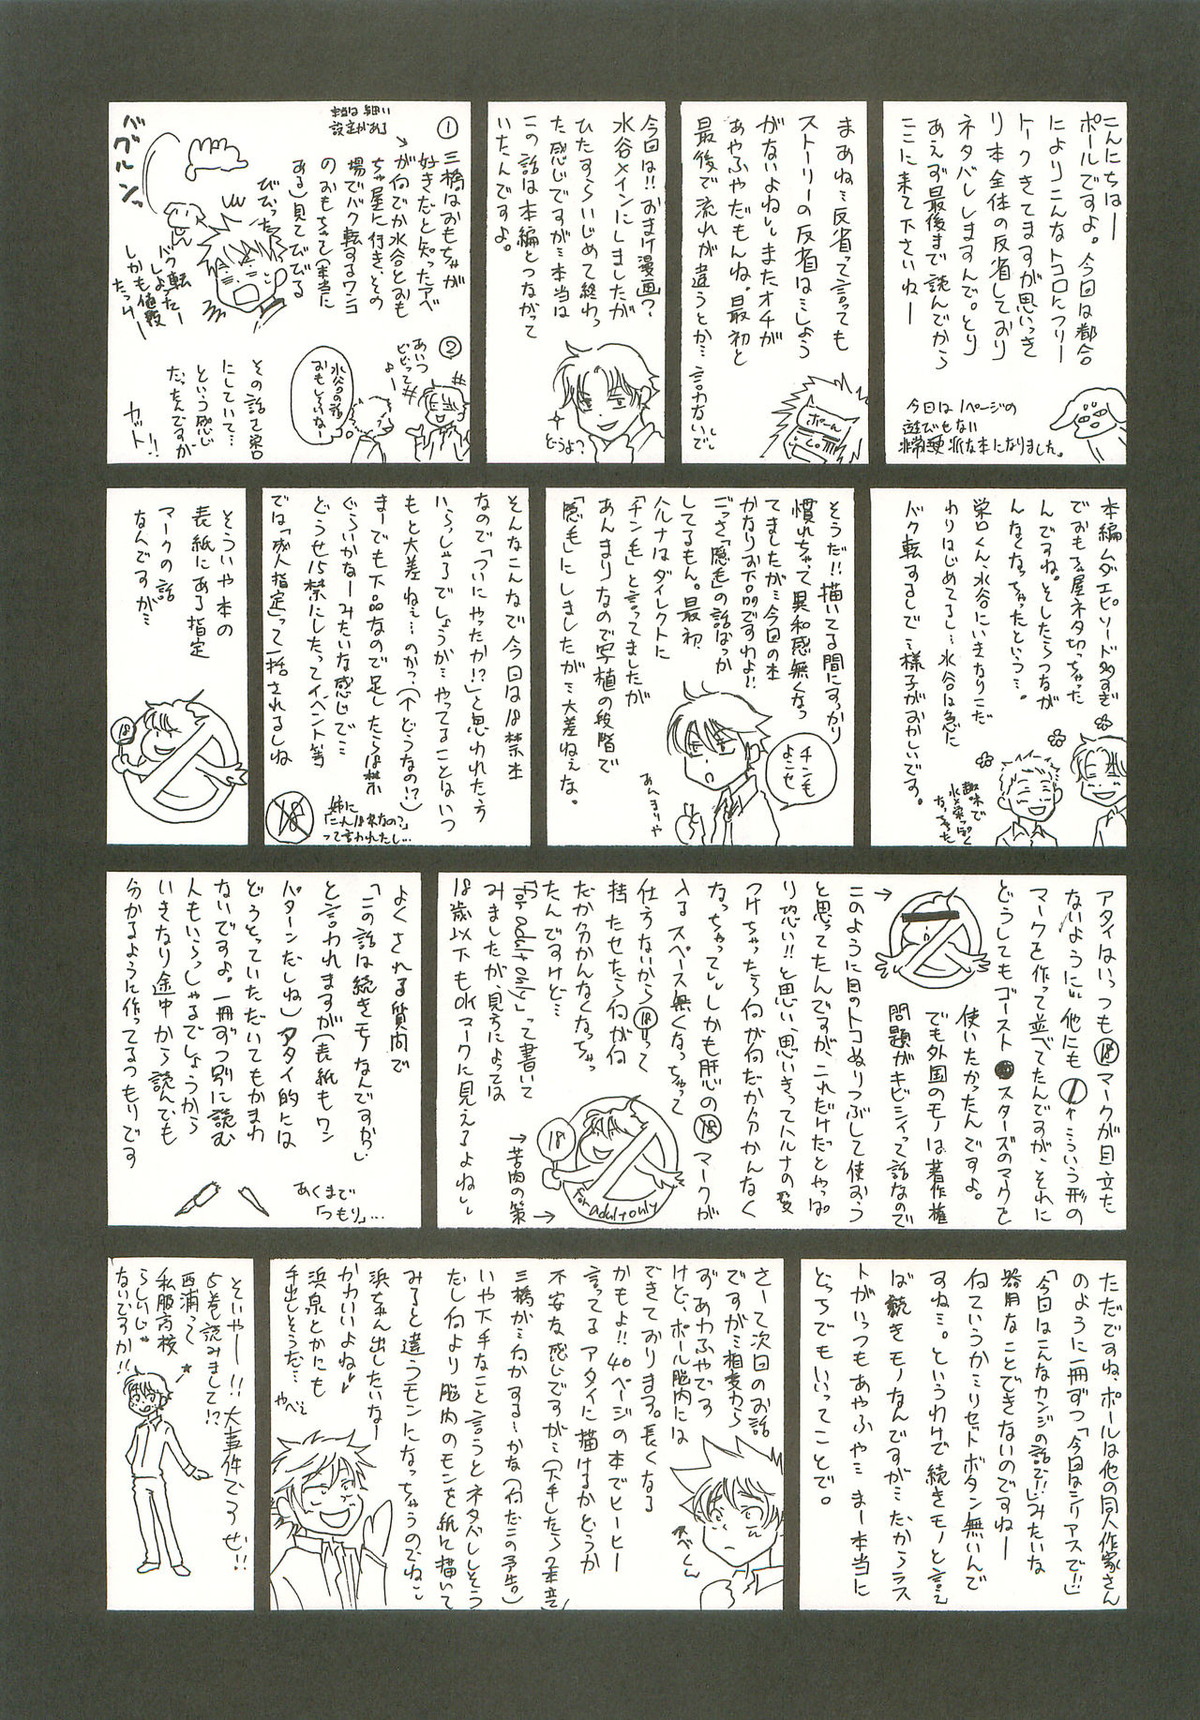 こんにちはー
ポールですよ。今回は都合
によりこんなトコロにフリー
トークきてますが思いっきし
り本全体の反省しており
ネタバレしますんで。とり
あえず最後まで読んでから
ここに来て下さいねー
今回は1ページの
遊びもない
非常硬派な本になりました。
まあね…反省って言っても
ストーリーの反省は…しよう
がないよねしまたオチが
あやふやだもんね。最初と
最後で流れが違うとか…言わないで
ポール
今回は!!おまけ漫画?
水谷メインにしましたが
ひたすらいじめて終わっ
た感じですが…本当は
この話は本編とつながって
いたんですよ。
どうよ?
①
三橋はおもちゃが
好きだと知ったアベ
が何でか水谷とおも
ちゃ屋に行き、その
場でバク転するワンコ
のおもちゃで(本当に
ある)見てびびる
本当は細い
設定がある
びびったー
バク転だー
しかも値段
たっけー
バグルン
②
あいつ
ビビってー
よー
水谷の話
おもしろいなー
その話を栄口
にしていて…
という感じ
だったんですが
カット!!
本編ムダエピソード多すぎ
でおもちゃ屋ネタ切っちゃった
んですね。としたらつなが
んなくなっちゃったという…。
栄口くん、水谷にいきなりこだ
わりはじめてるし…水谷は急に
バク転するしで…様子がおかしいです。
趣味で
水×栄っぽく
なっちゃった
そうだ!!描いてる間にすっかり
慣れちゃって異和感無くなっ
てましたが…今回の本
かなりお下品ですわよ!!
ごっさ「陰毛」の話ばっか
してるもん。最初、
ハルナはダイレクトに
「チン毛」と言ってましたが
あんまりなので写植の段階で
「陰毛」にしましたが…大差ねぇな。
チンも
よこせ
あんまりや
そんなこんなで今回は18禁本
なので「ついにやったか!?」と思われたう
いらっしゃるでしょうが…やってることはいつ
もと大差ねぇ…のか?…(↑どうなの!?)
まーでも下品なので足したら18禁
ぐらいかなーみたいな感じで…
どうせ15禁にしたってイベント等
では「成人指定」って一括されるしね
18
姉に
「これ18禁なの?」
って言われたし…
そういや本の
表紙にある指定
マークの話
なんですが…
18
アタイはいっつも⑱マークが目立た
ないように"他にも
←こういう形の
マークを作って並べてたんですが、それに
どうしてもゴースト●スターズのマークを
使いたかったんですよ。
でも外国のモノは著作権
問題がキビシィって話なので
このように目のトコぬりつぶして使おう
と思ってたんですが、これだけだとやっぱ
り恐い!!と思い、思いきってハルナの髪
つけちゃったら何が何だか分かんなく
なっちゃってししかも肝心の⑱マークが
入るスペース無くなっちゃって
仕方ないから⑱って
持たせたら何が何
だか分かんなくなっちゃっ
たんですけど…
「for adult only」って書いて
みましたが、見方によっては
18歳以下もOKマークに見えるよねしし
↑苦肉の策
18
for adult only
よくされる質問で
「この話は続きモノなんですか?」
と言われますが(表紙もワン
パターンだしね)アタイ的には
どうとっていただいてもかまわ
ないですよ。一冊ずつ別に読む
人もいらっしゃるでしょうから
いきなり途中から読んでも
分かるように作ってるつもりです
あくまで
「つもり」…
ただですね、ポールは他の同人作家さん
のように一冊ずつ「今回はシリアスで!!」
「今回はこんなカンジの話で!!」みたいな
器用なことできないのですねー
何ていうか…リセットボタン無いんで
すね…。というわけで続きモノと言え
ば続きモノなんですが…だからラス
トがいっつもあやふや…まー本当に
どっちでもいいってことで。
さーて次回のお話
ですが…相変わら
ずあわふやです
けど、ポール脳内には
できております。長くなる
かもよ!!40ページの本でヒーヒー
言ってるアタイに描けるかどうか
不安な感じですが…(下手したら2本立)
三橋が…何かする…かな(何だこの予告。)
いや下手なこと言うとネタバレしそう
だし何より脳内のモンを紙に描いて
みると違うモンになっちゃうのでねし
浜ちゃん出したいなー
かわいいよね♪
浜泉とかにも
手出しそうだ…
やべぇ
そいやー!!大事件でるぜ!!
5巻読みまして!?
西浦って
私服高校
らしいじゃ
ないですか!!